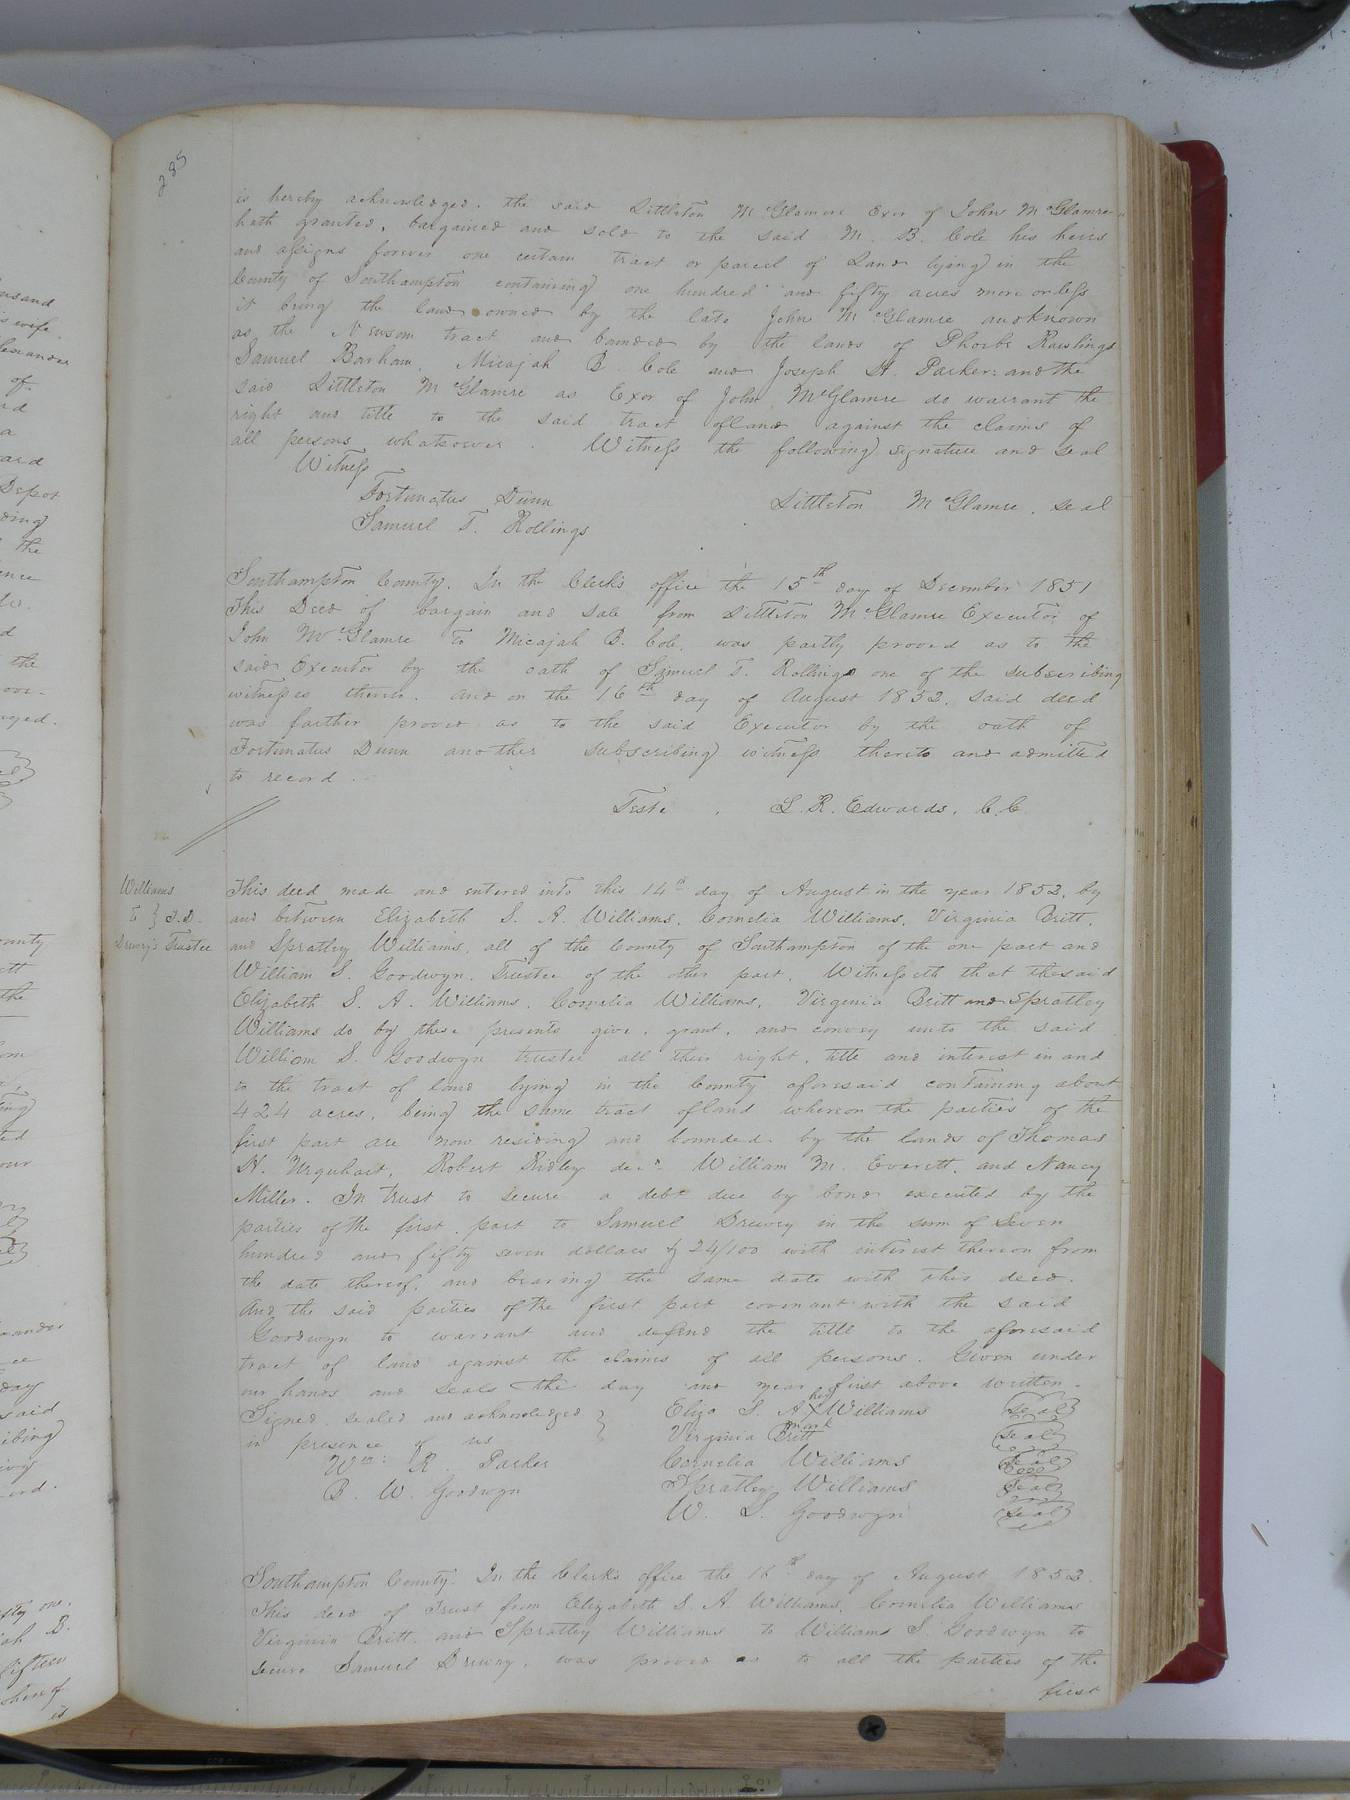 285
is hereby acknowledged. the said Littleton McGlamre Exor of John McGlamre
hath granted, bargained and sold to the said M. B. Cole his heirs
and assigns forever one certain tract or parcel of Land lying in the
County of Southampton containing one hundred and fifty acres more or less
it being the land owned by the late John McGlamre and known
as the Newsom tract and bounded by the lands of Phoebe Rawlings
Samuel Barham, Micajah B. Cole and Joseph H. Parker: and the
said Littleton McGlamre as Exor of John McGlamre do warrant the
right and title to the said tract of land against the claims of
all persons whatsoever. Witness the following signature and seal
Witness
Fortunatus Dunn
Littleton McGlamre. Seal
Samuel T. Rollings
Southampton County. In the Clerk's office the 15th day of December 1851
This Deed of bargain and sale from Littleton McGlamre Executor of
John McGlamre to Micajah B. Cole, was partly proved as to the
said Executor by the oath of Samuel T. Rollings one of the subscribing
witnesses thereto. And on the 16th day of August 1852. Said deed
was farther proved as to the said Executor by the oath of
Fortunatus Dunn another subscribing witness thereto and admitted
to record.
Teste, L. R. Edwards, C.C.
Williams
to } T.D.
Drewry's Trustee
This deed made and entered into this 14th day of August in the year 1852, by
and between Elizabeth S. A. Williams, Cornelia Williams, Virginia Britt,
and Spratley Williams, all of the County of Southampton of the one part and
William S. Goodwyn, Trustee of the other part, Witnesseth that the said
Elizabeth S. A. Williams, Cornelia Williams, Virginia Britt and Spratley
Williams do by these presents give, grant, and convey unto the said
William S. Goodwyn trustee all their right, title and interest in and
to the tract of land lying in the County aforesaid containing about
424 acres, being the same tract of land whereon the parties of the
first part are now residing and bounded by the lands of Thomas
H. Urquhart, Robert Ridley decd. William M. Everett, and Nancy
Miller. In trust to secure a debt due by bond executed by the
parties of the first part to Samuel Drewry in the sum of Seven
hundred and fifty seven dollars & 24/100 with interest thereon from
the date thereof, and bearing the same date with this deed.
And the said parties of the first part covenant with the said
Goodwyn to warrant and defend the title to the aforesaid
tract of land against the claims of all persons. Given under
our hands and seals the day and year first above written.
Signed sealed and acknowledged }
in presence of us
Wm: R. Parker
B. W. Goodwyn
Eliza S. A. her X mark Williams Seal
Virginia Britt Seal
Cornelia Williams Seal
Spratley Williams Seal
W. S. Goodwyn Seal
Southampton County. In the Clerk's office the 16th day of August 1852.
This deed of Trust from Elizabeth S. A. Williams, Cornelia Williams
Virginia Britt and Spratley Williams to Williams S. Goodwyn to
secure Samuel Drewry, was proved as to all the parties of the
first